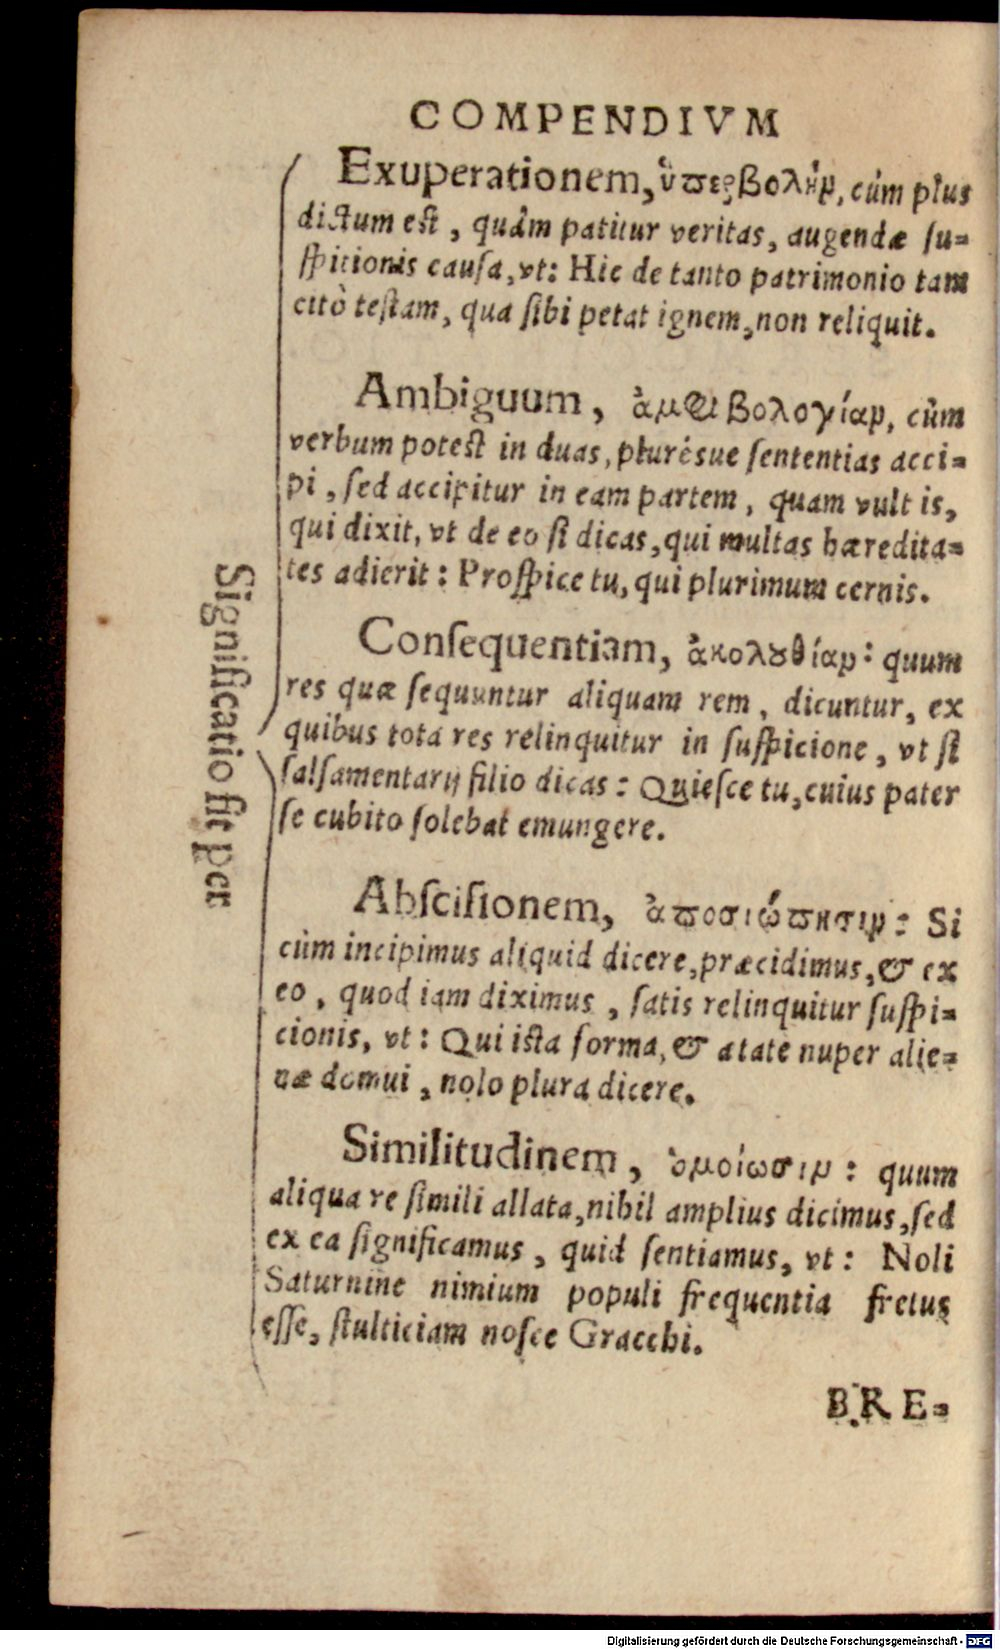 COMPENDIVM
Significatio fit per
Exuperationem, ὑπερβολὴν, cùm plus
dictum est, quàm patitur veritas, augendæ su-
spicionis causa, vt: Hic de tanto patrimonio tam
citò testam, qua sibi petat ignem, non reliquit.
Ambiguum, ἀμφιβολογίαν, cùm
verbum potest in duas, plurésue sententias acci-
pi, sed accipitur in eam partem, quam vult is,
qui dixit, vt de eo si dicas, qui multas hæredita-
tes adierit: Prospice tu, qui plurimum cernis.
Consequentiam, ἀκολουθίαν: quum
res quæ sequuntur aliquam rem, dicuntur, ex
quibus tota res relinquitur in suspicione, vt si
salsamentarij filio dicas: Quiesce tu, cuius pater
se cubito solebat emungere.
Abscisionem, ἀποσιώπησιν: Si
cùm incipimus aliquid dicere, præcidimus, & ex
eo, quod iam diximus, satis relinquitur suspi-
cionis, vt: Qui ista forma, & ætate nuper alie-
næ domui, nolo plura dicere.
Similitudinem, ὁμοίωσιν: quum
aliqua re simili allata, nihil amplius dicimus, sed
ex ea significamus, quid sentiamus, vt: Noli
Saturnine nimium populi frequentia fretus
esse, stulticiam nosce Gracchi.
BRE-
Digitalisierung gefördert durch die Deutsche Forschungsgemeinschaft - DFG